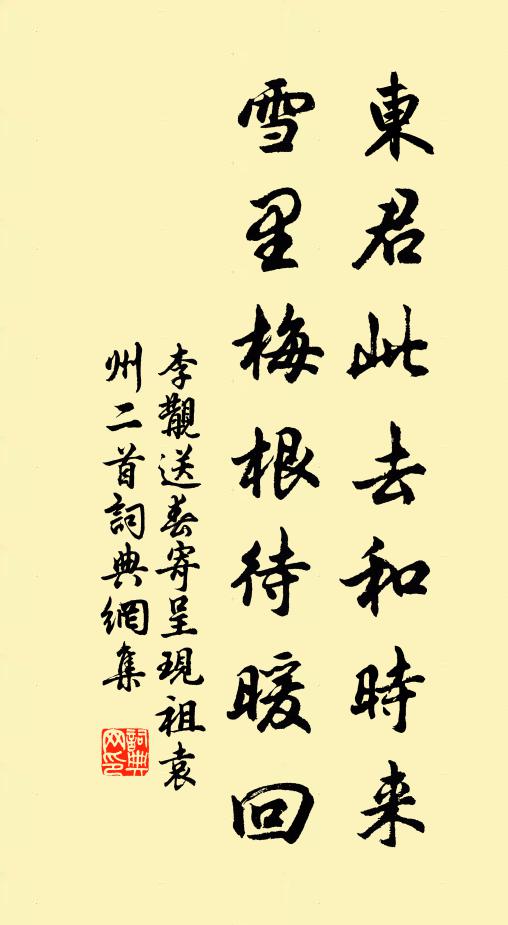 東君此去和時来
雪里梅根待暖回
李觀送春寄呈現祖袁
州二首詞典網集
詞典
网印